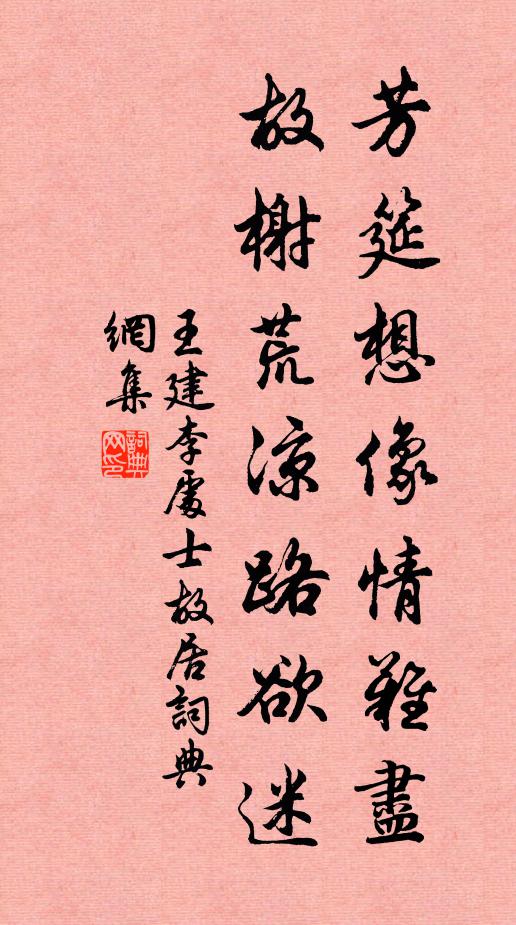 芳筵想像情難盡
故榭荒涼路欲迷
王建李處士故居詞典
網集
詞典網印